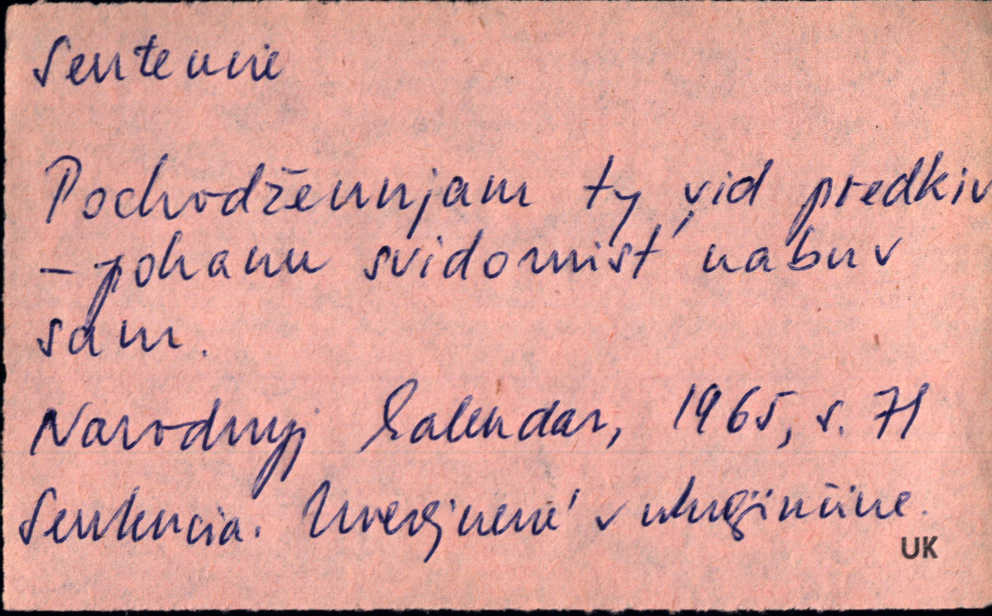 Sentencie
Pochodžennjam ty vid predkiv
– pohanu svidomist' nabuv
sam.
Narodnyj kalendar, 1965, s. 71
Sentencia. Uverejnené v ukrajinčine.
UK